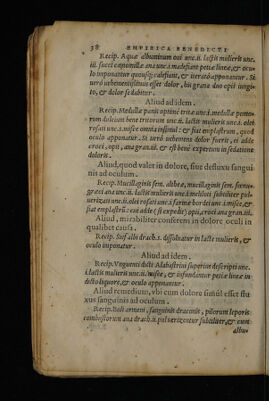 38 EMPIRICA BENEDICTI
Recip. Aquæ albuminum oui unc.ii. lactis mulieris unc.
iii. succi camomillæ ana unc.s. madefiant petiæ lineæ, & ocu-
lo imponantur quousq; calefiant, & iterato apponantur. Si
uerò uehementissimus esset dolor, bis grana duo opii iungi-
to, & dolor sedabitur.
Aliud ad idem.
Recip. Medullæ panis optimè tritæ unc.s. medullæ pomo-
rum dulcium bene tritorum unc. ii. lactis mulieris unc.s. olei
rosati unc.s. misce omnia insimul: & fiat emplastrum, quod
oculo apponatur. Si uerò uehemens dolor fuerit, adii-
ce croci, opii, ana gran.iii. & est bene expertum in sedatione
doloris.
Aliud, quod valet in dolore, siue defluxu sangui-
nis ad oculum.
Recip. Mucillaginis sem. altheæ, mucillaginis sem. fœnu-
græci ana unc.ii. lactis mulieris unc.s. medulli subtiliter pul-
uerizati unc.ii. olei rosati unc.s. farinæ hordei unc.s. misce, &
fiat emplastrum: cui adde (si expedit) opii, croci ana gran.iii.
Aliud, mirabiliter conferens in dolore oculi in
qualibet causa.
Recip. Sief albi drach.s. dissoluatur in lacte mulieris, &
oculo imponatur.
Aliud ad idem.
Recip. Vnguenti dicti Alabastrini superius descripti unc.
i. lactis mulieris unc.ii. misce, & infundantur petiæ lineæ in
dicto liquore, & oculo apponantur.
Aliud remedium, vbi cum dolore simul esset flu-
xus sanguinis ad oculum.
Recip. Boli armeni, sanguinis draconis, pilorum leporis
combustorum ana drach.ii. puluerizentur subtiliter, & cum
albu-